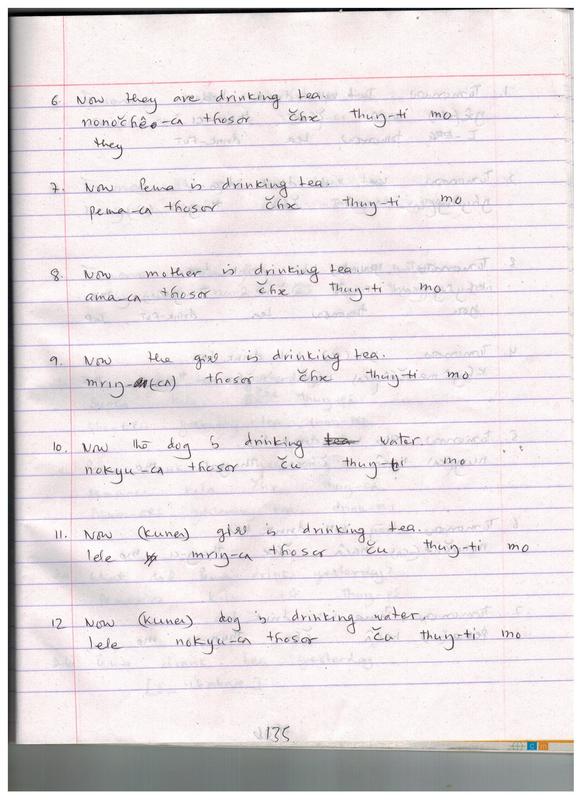 6. Now they are drinking tea.
nonočhê-ca thosor čhx thuŋ-ti mo
they
7. Now Pema is drinking tea.
pema-ca thosor čhx thuŋ-ti mo
8. Now mother is drinking tea
ama-ca thosor čhx thuŋ-ti mo
9. Now the girl is drinking tea.
mrıŋ-(ca) thosor čhx thuŋ-ti mo
10. Now the dog is drinking water.
nokyu-ca thosor ču thuŋ-ti mo
11. Now (kunes) girl is drinking tea.
lele mrıŋ-ca thosor ču thuŋ-ti mo
12 Now (kunes) dog is drinking water.
lele nokyu-ca thosor ču thuŋ-ti mo
135